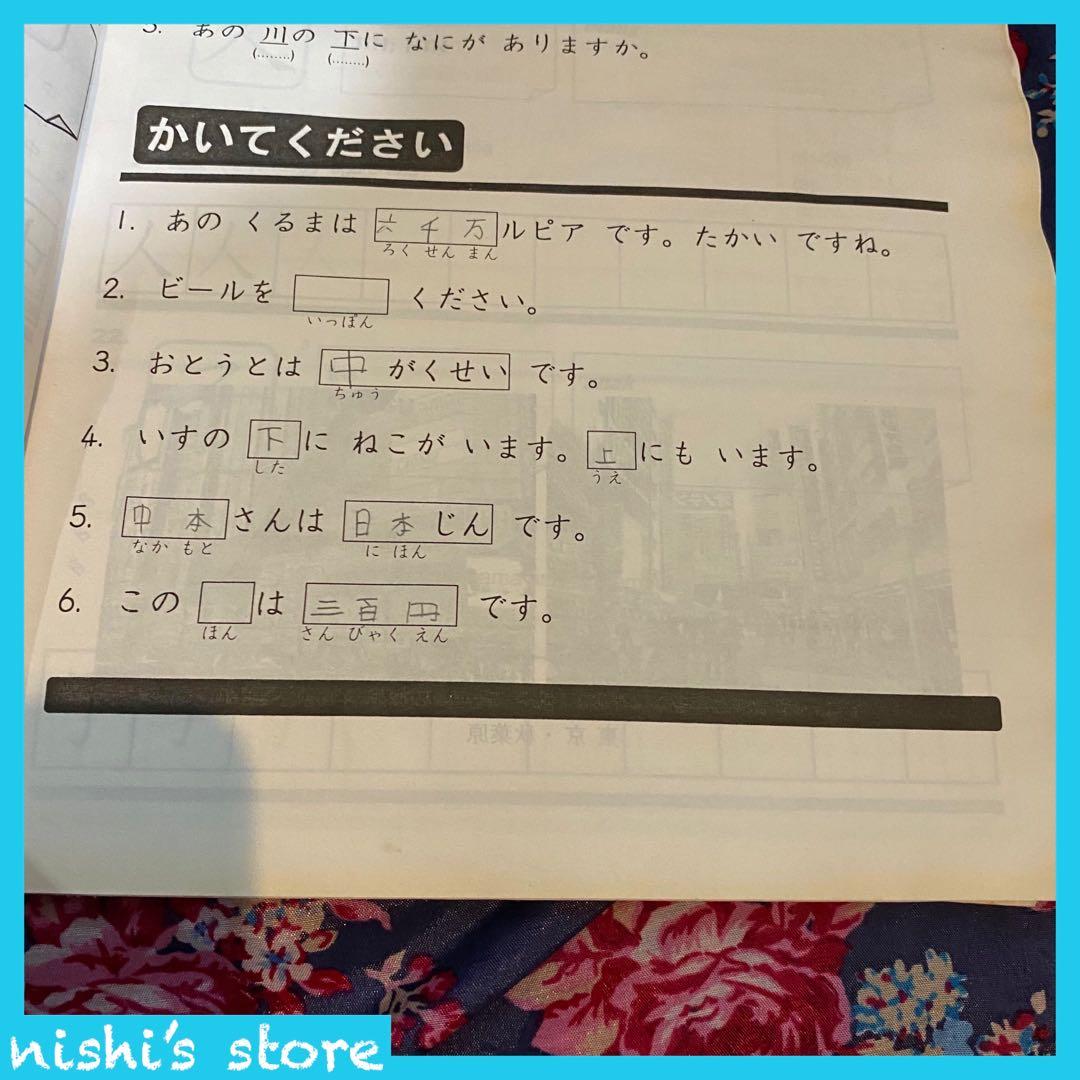 5. あの 川の 下に なにが ありますか。
(........) (........)
かいてください
1. あの くるまは 六千万ルピア です。たかい ですね。
ろく せん まん
2. ビールを ください。
いっぽん
3. おとうとは 中がくせい です。
ちゅう
4. いすの 下に ねこが います。上にも います。
した うえ
5. 中本さんは 日本じん です。
なか もと に ほん
6. この は 三百円 です。
ほん さん びゃく えん
東京・秋葉原
nishi's store